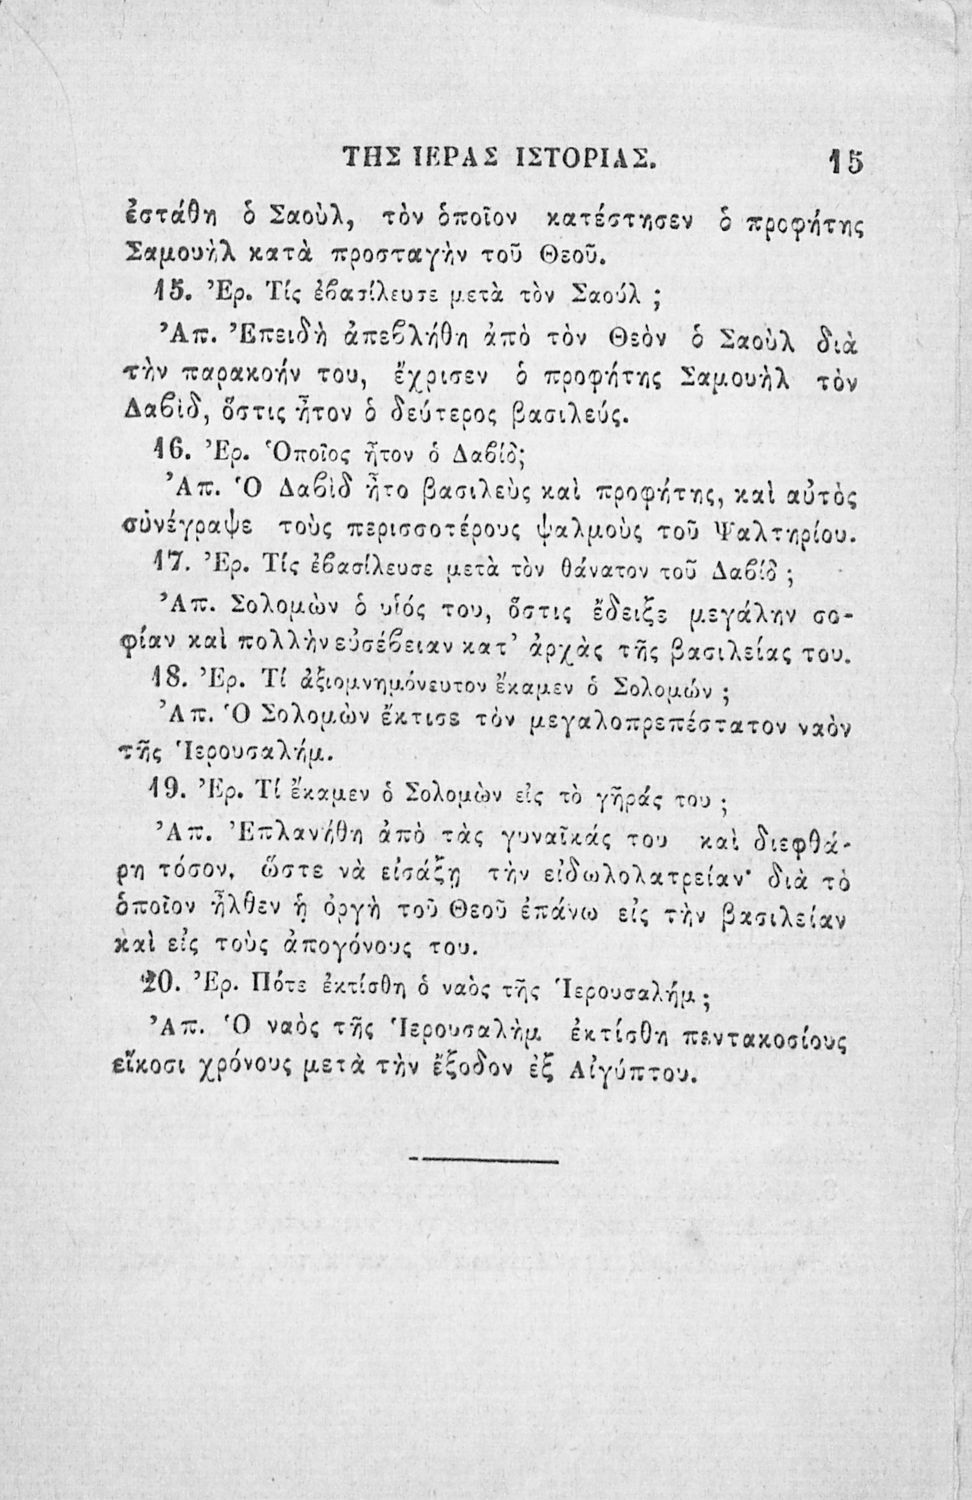 ΤΗΣ ΙΕΡΑΣ ΙΣΤΟΡΙΑΣ. 15
ἐστάθη ὁ Σαοὺλ, τὸν ὁποῖον κατέστησεν ὁ προφήτης
Σαμουὴλ κατὰ προσταγὴν τοῦ Θεοῦ.
15. Ἐρ. Τίς ἐβασίλευσε μετὰ τὸν Σαούλ ;
Ἀπ. Ἐπειδὴ ἀπεβλήθη ἀπὸ τὸν Θεὸν ὁ Σαοὺλ διὰ
τὴν παρακοήν του, ἔχρισεν ὁ προφήτης Σαμουὴλ τὸν
Δαβὶδ, ὅστις ἦτον ὁ δεύτερος βασιλεύς.
16. Ἐρ. Ὁποῖος ἦτον ὁ Δαβίδ;
Ἀπ. Ὁ Δαβὶδ ἦτο βασιλεὺς καὶ προφήτης, καὶ αὐτὸς
συνέγραψε τοὺς περισσοτέρους ψαλμοὺς τοῦ Ψαλτηρίου.
17. Ἐρ. Τίς ἐβασίλευσε μετὰ τὸν θάνατον τοῦ Δαβίδ ;
Ἀπ. Σολομὼν ὁ υἱός του, ὅστις ἔδειξε μεγάλην σο-
φίαν καὶ πολλὴν εὐσέβειαν κατ’ ἀρχὰς τῆς βασιλείας του.
18. Ἐρ. Τί ἀξιομνημόνευτον ἔκαμεν ὁ Σολομών ;
Ἀπ. Ὁ Σολομὼν ἔκτισε τὸν μεγαλοπρεπέστατον ναὸν
τῆς Ἱερουσαλήμ.
19. Ἐρ. Τί ἔκαμεν ὁ Σολομὼν εἰς τὸ γῆράς του ;
Ἀπ. Ἐπλανήθη ἀπὸ τὰς γυναῖκάς του καὶ διεφθά-
ρη τόσον, ὥστε νὰ εἰσάξῃ τὴν εἰδωλολατρείαν· διὰ τὸ
ὁποῖον ἦλθεν ἡ ὀργὴ τοῦ Θεοῦ ἐπάνω εἰς τὴν βασιλείαν
καὶ εἰς τοὺς ἀπογόνους του.
20. Ἐρ. Πότε ἐκτίσθη ὁ ναὸς τῆς Ἱερουσαλήμ ;
Ἀπ. Ὁ ναὸς τῆς Ἱερουσαλὴμ ἐκτίσθη πεντακοσίους
εἴκοσι χρόνους μετὰ τὴν ἔξοδον ἐξ Αἰγύπτου.